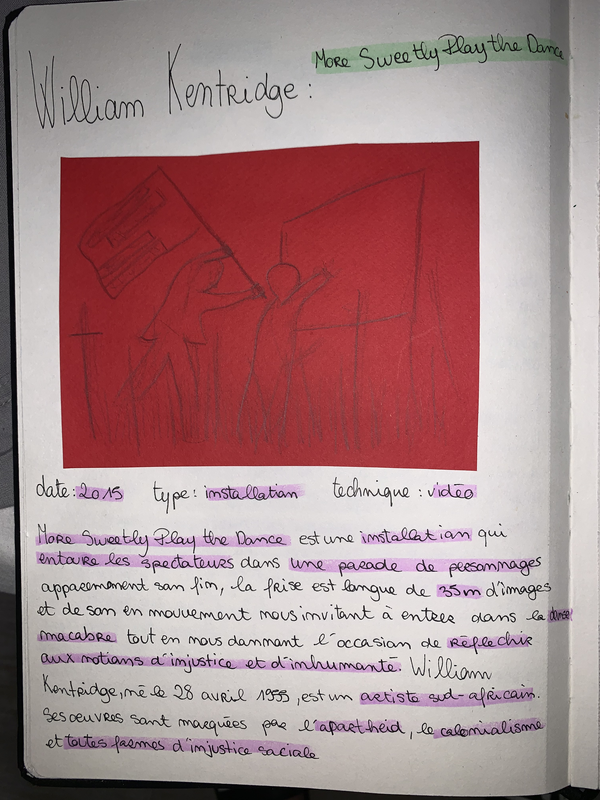 More Sweetly Play the Dance
William Kentridge :
date: 2015 type: installation technique : vidéo
More Sweetly Play the Dance est une installation qui
entoure les spectateurs dans une parade de personnages
apparemment san fin, la frise est longue de 35m d'images
et de son en mouvement nous invitant à entrer dans la danse
macabre tout en nous donnant l'occasion de réflechir
aux notions d'injustice et d'inhumanté. William
Kentridge, né le 28 avril 1955, est un artiste sud-africain.
Ses oeuvres sont marquées par l'apartheid, le colonialisme
et toutes formes d'injustice sociale